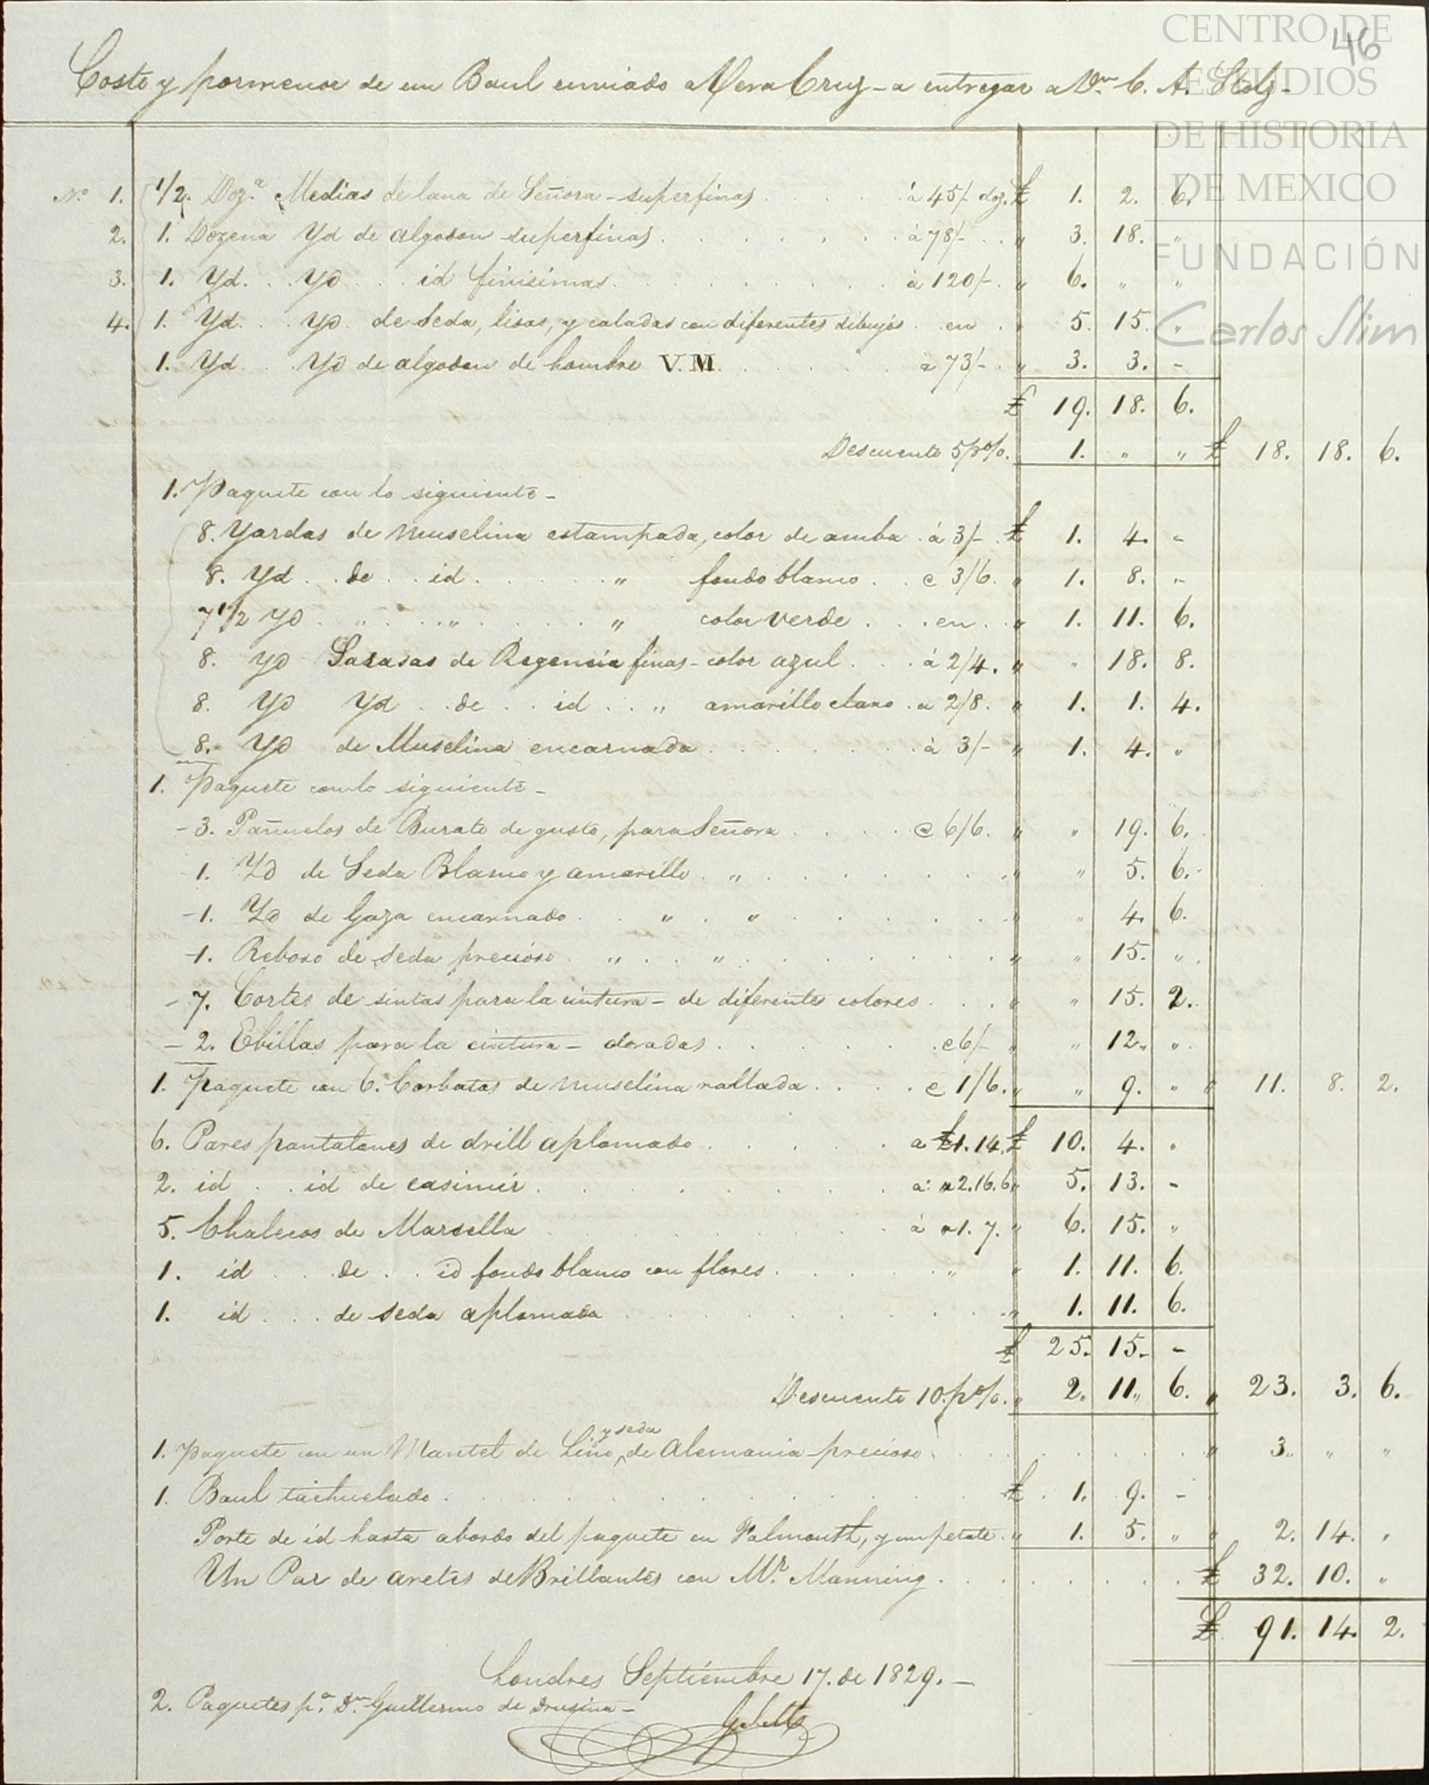 CENTRO DE
ESTUDIOS
DE HISTORIA
DE MEXICO
FUNDACIÓN
Carlos Slim
46
Costo y pormenor de un Baul enviado a Vera Cruz - a entregar a Dn. C. A. Holz -
No. 1. 1/2. Doza. Medias de lana de Señora - superfinas . . . á 45/- doz. £ 1. 2. 6.
2. 1. Dozena Yd de algodon superfinas . . . á 78/- . . " 3. 18. "
3. 1. Yd. . . Yd . . id finisimas . . . á 120/- . " 6. " "
4. 1. Yd. . . Yd. de Seda, lisas, y caladas con diferentes dibujos . en . " 5. 15. "
1. Yd . . Yd de algodon de hombre V.M. . . . a 73/- . " 3. 3. -
£ 19. 18. 6.
Descuento 5 p%. 1. " " £ 18. 18. 6.
1. Paquete con lo siguiente -
8. Yardas de muselina estampada, color de amba . á 3/- . £ 1. 4. -
8. Yd . . de . . id . . . " fondo blanco . . c 3/6. " 1. 8. -
7 1/2 Yd . . " . . " . . . " color verde . . . en . . " 1. 11. 6.
8. Yd Sarasas de Regencia finas - color azul . . . á 2/4. " " 18. 8.
8. Yd Yd . . de . . id . . " amarillo claro . a 2/8. " 1. 1. 4.
8. Yd de Muselina encarnada . . . á 3/- " 1. 4. "
1. Paquete con lo siguiente -
- 3. Pañuelos de Burato de gusto, para Señora . . . c 6/6. " " 19. 6.
1. Yd de Seda Blanco y amarillo . " . . . " " 5. 6.
- 1. Yd de Gaza encarnado . . " . " . . . " " 4. 6.
- 1. Reboso de seda precioso . . " . . " . . . " " 15. "
- 7. Cortes de sintas para la cintura - de diferentes colores . . . " " 15. 2.
- 2. Ebillas para la cintura - doradas . . . c 6/- " " 12. "
1. Paquete con 6. Corbatas de muselina rallada . . . c 1/6. " " 9. " " 11. 8. 2.
6. Pares pantalones de drill aplomado . . . a £1. 14. £ 10. 4. "
2. id . . id de casimir . . . a: " 2. 16. 6 " 5. 13. -
5. Chalecos de Marsella . . . á " 1. 7. " 6. 15. "
1. id . . . de . . id fondo blanco con flores . . . " " 1. 11. 6.
1. id . . . de seda aplomada . . . " 1. 11. 6.
£ 25. 15. -
Descuento 10. p%. " 2. 11. 6. " 23. 3. 6.
y seda
1. Paquete con un Mantel de Lino, de Alemania - precioso . . . " 3. " "
1. Baul tachuelado . . . £ . 1. 9. -
Porte de id hasta abordo del paquete en Falmouth, y un petate . " 1. 5. " " 2. 14. "
Un Par de aretes de Brillantes con Mr. Manning . . . £ 32. 10. "
£ 91. 14. 2.
Londres Septiembre 17. de 1829. -
2. Paquetes pa. Dn. Guillermo de Drusina -